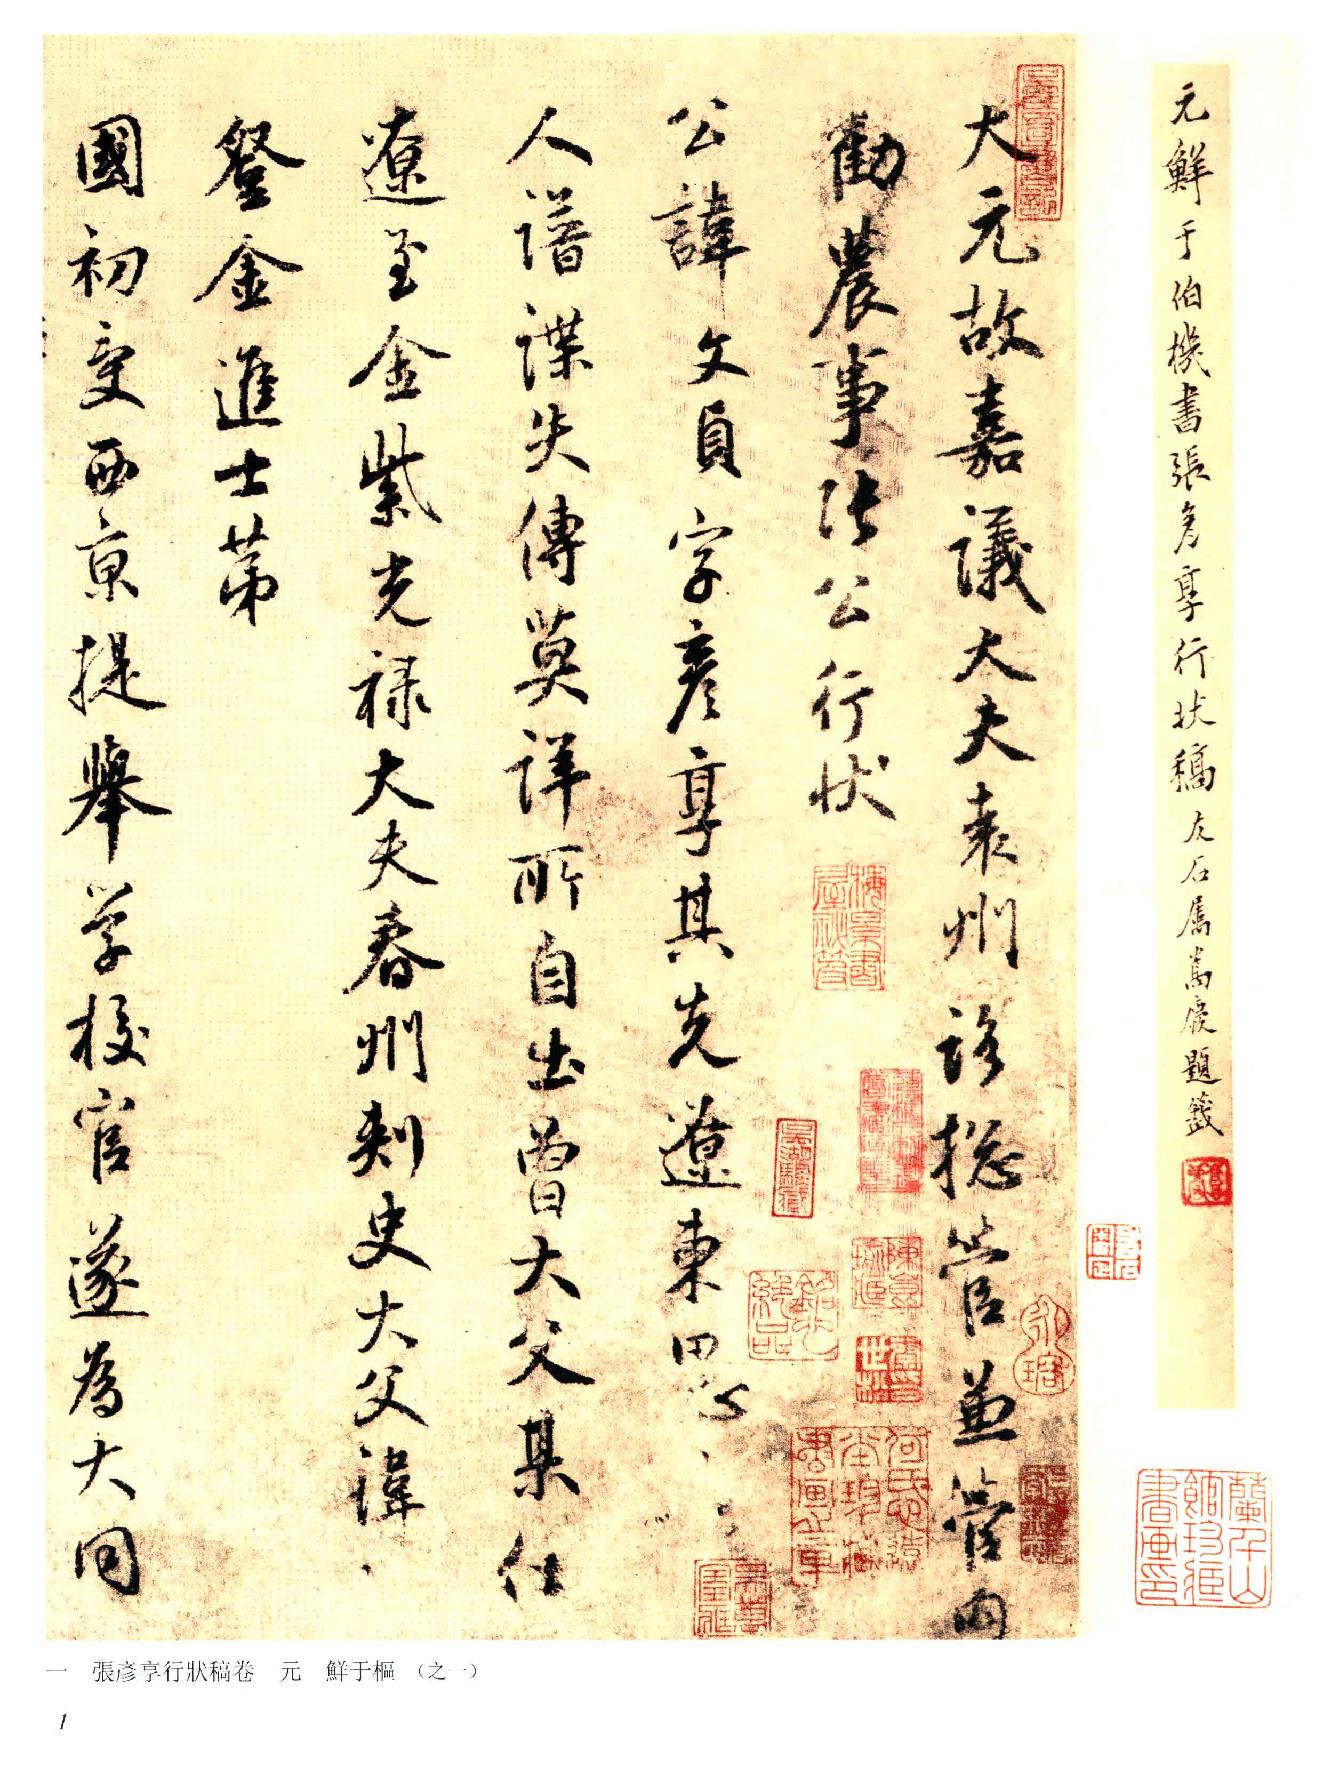 元鮮于伯機書張彥享行狀稿左右属嵩庼題籤
大元故嘉議大夫袁州路総管兼管内
勸農事張公行状
公諱文貞字彦享其先遼東思
人譜諜失傳莫詳所自出曽大父某仕
遼至金紫光禄大夫春州刺史大父諱
登金進士第
國初受西京提舉学校官遂為大同
一 張彥亨行狀稿卷 元 鮮于樞 （之一）
1